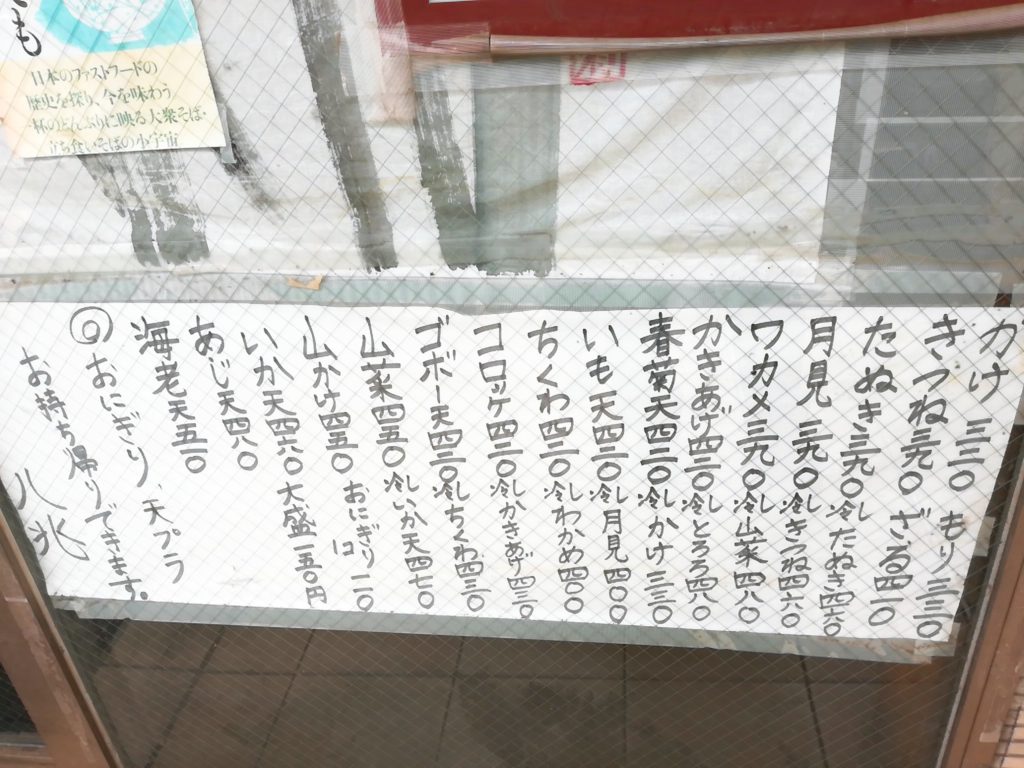 も
日本のファストフードの
歴史を探り、今を味わう
一杯のどんぶりに映る大衆そば・
立ち食いそばの小宇宙
カけ 三三〇 もり 三三〇
きつね 三九〇 ざる 四一〇
たぬき 三九〇 冷したぬき 四六〇
月見 三九〇 冷しきつね 四六〇
ワカメ 三九〇 冷し山菜 四八〇
かきあげ 四三〇 冷しとろろ 四八〇
春菊天 四三〇 冷しかけ 三三〇
いも天 四三〇 冷し月見 四〇〇
ちくわ 四三〇 冷しわかめ 四〇〇
コロッケ 四三〇 冷しかきあげ 四三〇
ゴボー天 四三〇 冷しちくわ 四三〇
山菜 四五〇 冷しいか天 四七〇
山かけ 四五〇 おにぎり 一コ 一二〇
いか天 四六〇 大盛 一五〇円
あじ天 四八〇
海老天 五五〇
◎おにぎり、天プラ
お持ち帰りできます。
八兆